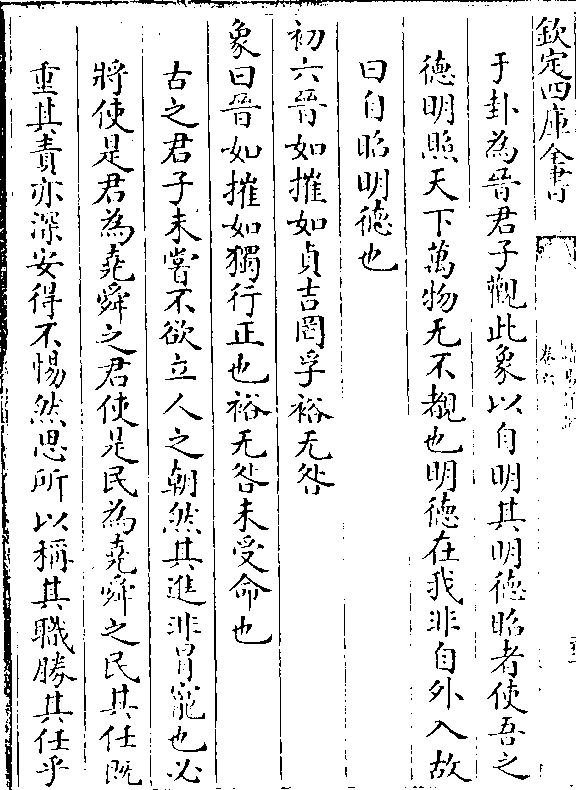 欽定四庫全書
卷六
于卦為晉君子觀此象以自明其明德昭者使吾之
德明照天下萬物无不覩也明德在我非自外入故
曰自昭明德也
初六晉如摧如貞吉罔孚裕无咎
象曰晉如摧如獨行正也裕无咎未受命也
古之君子未嘗不欲立人之朝然其進非冒寵也必
將使是君為堯舜之君使是民為堯舜之民其任既
重其責亦深安得不惕然思所以稱其職勝其任乎